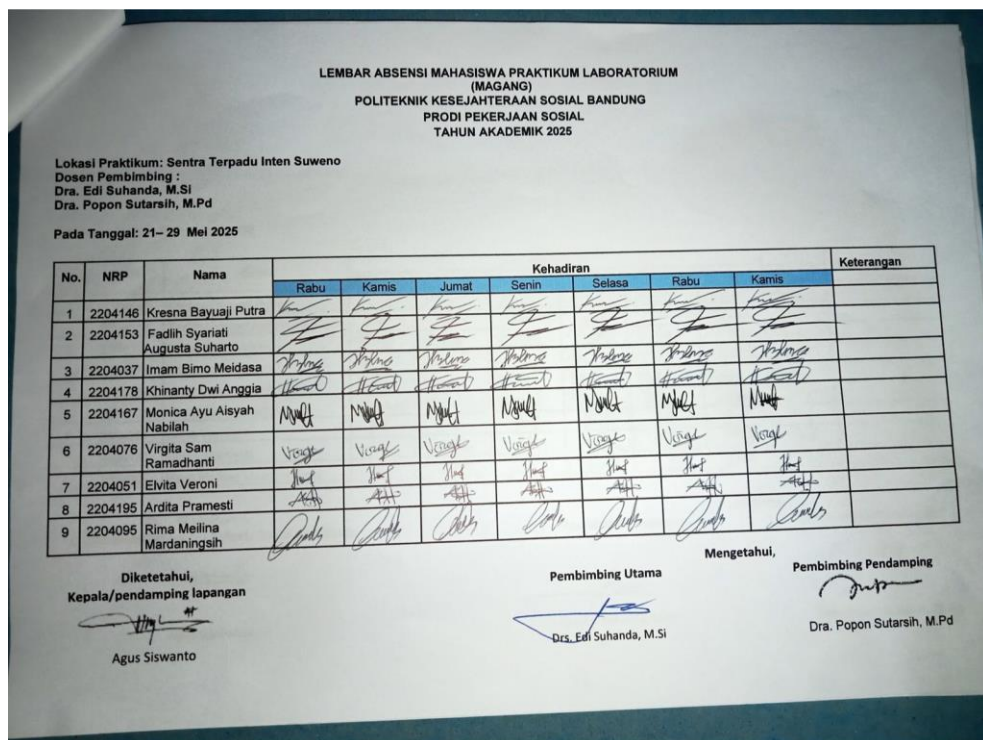 LEMBAR ABSENSI MAHASISWA PRAKTIKUM LABORATORIUM
(MAGANG)
POLITEKNIK KESEJAHTERAAN SOSIAL BANDUNG
PRODI PEKERJAAN SOSIAL
TAHUN AKADEMIK 2025
Lokasi Praktikum: Sentra Terpadu Inten Suweno
Dosen Pembimbing :
Dra. Edi Suhanda, M.Si
Dra. Popon Sutarsih, M.Pd
Pada Tanggal: 21– 29 Mei 2025
No. NRP Nama Kehadiran Keterangan
Rabu Kamis Jumat Senin Selasa Rabu Kamis
1 2204146 Kresna Bayuaji Putra
2 2204153 Fadlih Syariati
Augusta Suharto
3 2204037 Imam Bimo Meidasa
4 2204178 Khinanty Dwi Anggia
5 2204167 Monica Ayu Aisyah
Nabilah
6 2204076 Virgita Sam
Ramadhanti
7 2204051 Elvita Veroni
8 2204195 Ardita Pramesti
9 2204095 Rima Meilina
Mardaningsih
Mengetahui,
Diketetahui,
Kepala/pendamping lapangan
Agus Siswanto
Pembimbing Utama
Drs. Edi Suhanda, M.Si
Pembimbing Pendamping
Dra. Popon Sutarsih, M.Pd